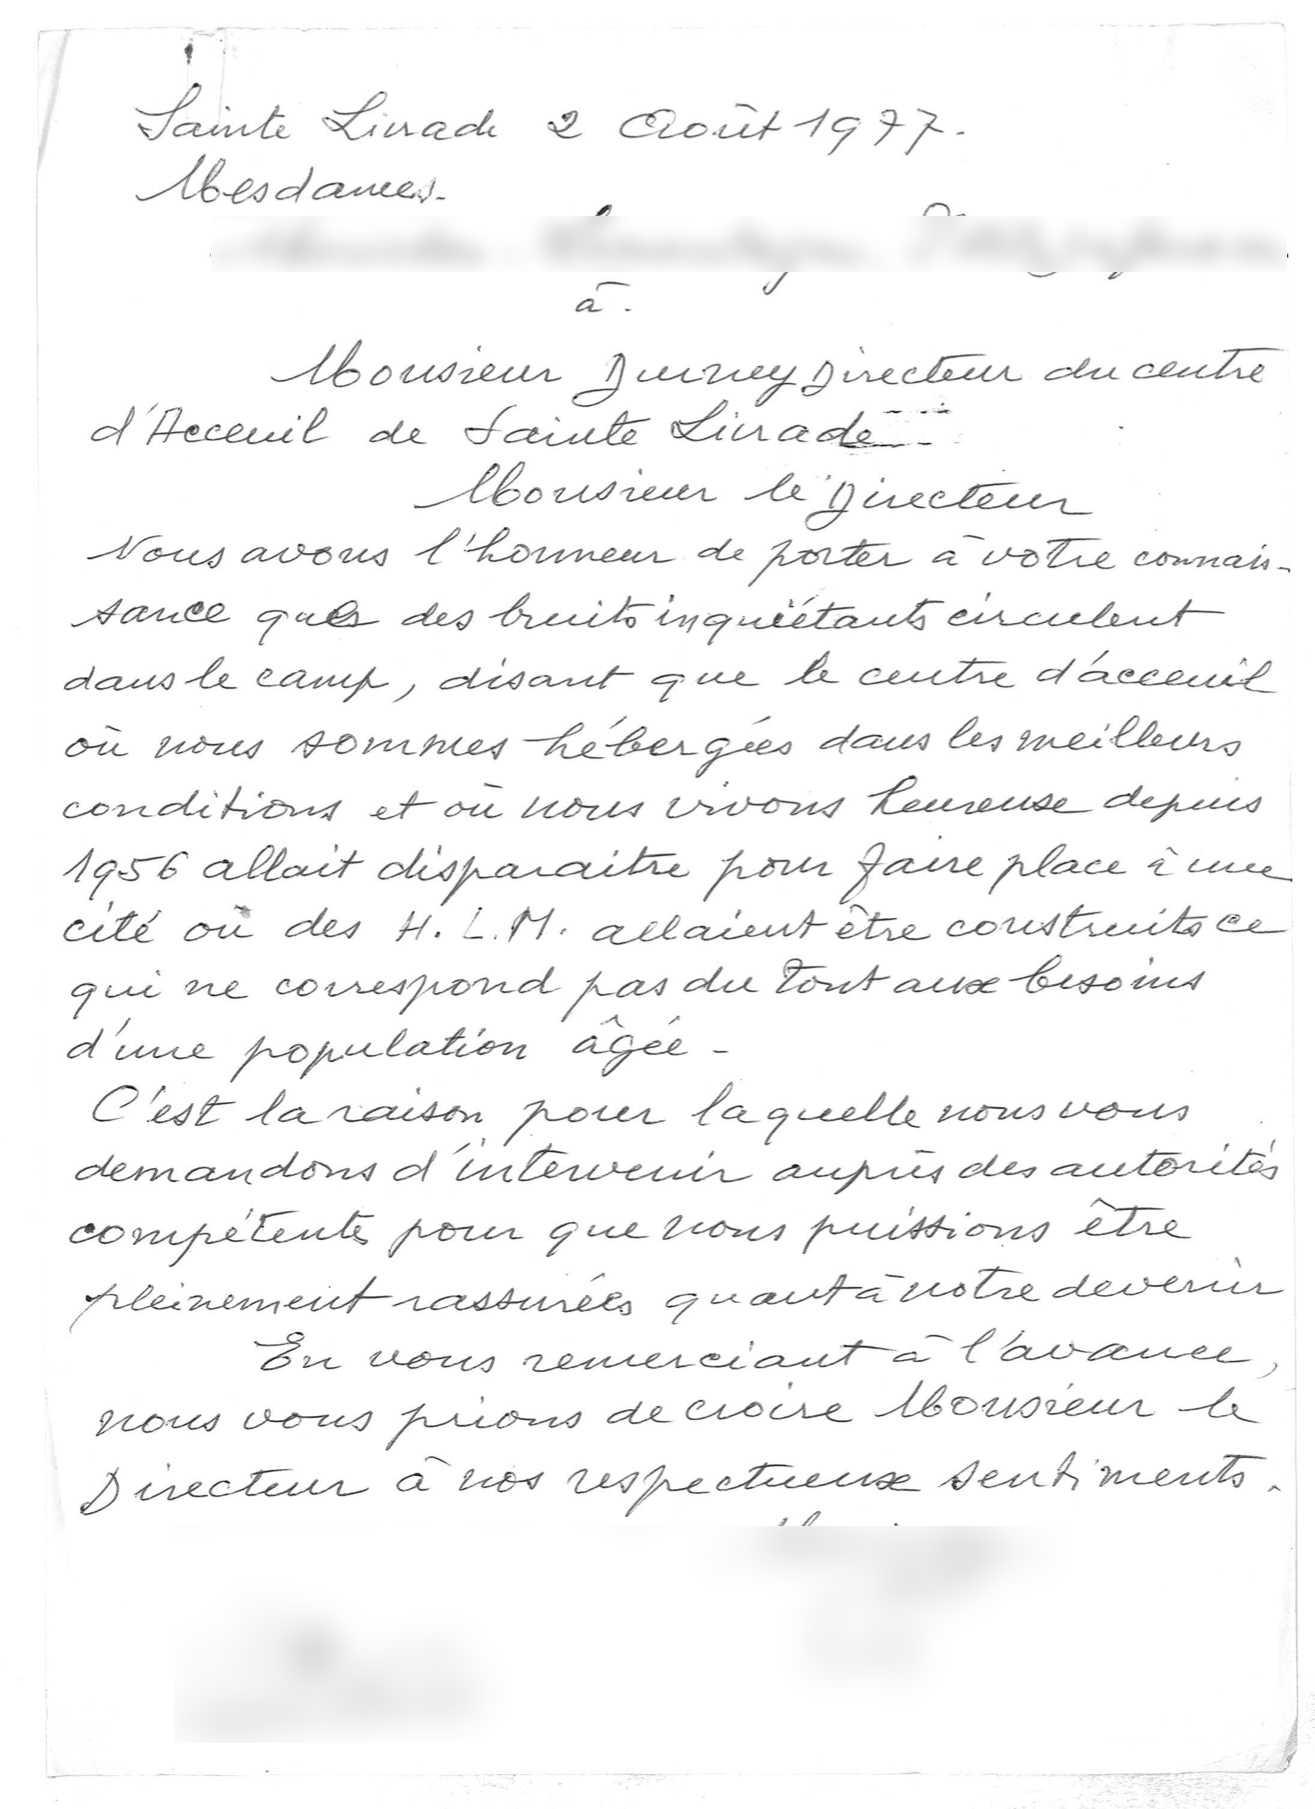 Sainte Livrade 2 Août 1977.
Mesdames.
à.
Monsieur Directeur du centre
d'Acceuil de Sainte Livrade
Monsieur le Directeur
Nous avons l'honneur de porter à votre connais-
sance que des bruits inquiétants circulent
dans le camp, disant que le centre d'acceuil
où nous sommes hébergées dans les meilleurs
conditions et où nous vivons heureuse depuis
1956 allait disparaitre pour faire place à une
cité où des H.L.M. allaient être construits ce
qui ne correspond pas du tout aux besoins
d'une population âgée -
C'est la raison pour laquelle nous vous
demandons d'intervenir auprès des autorités
compétentes pour que nous puissions être
pleinement rassurées quant à notre devenir
En vous remerciant à l'avance,
nous vous prions de croire Monsieur le
Directeur à nos respectueux sentiments.